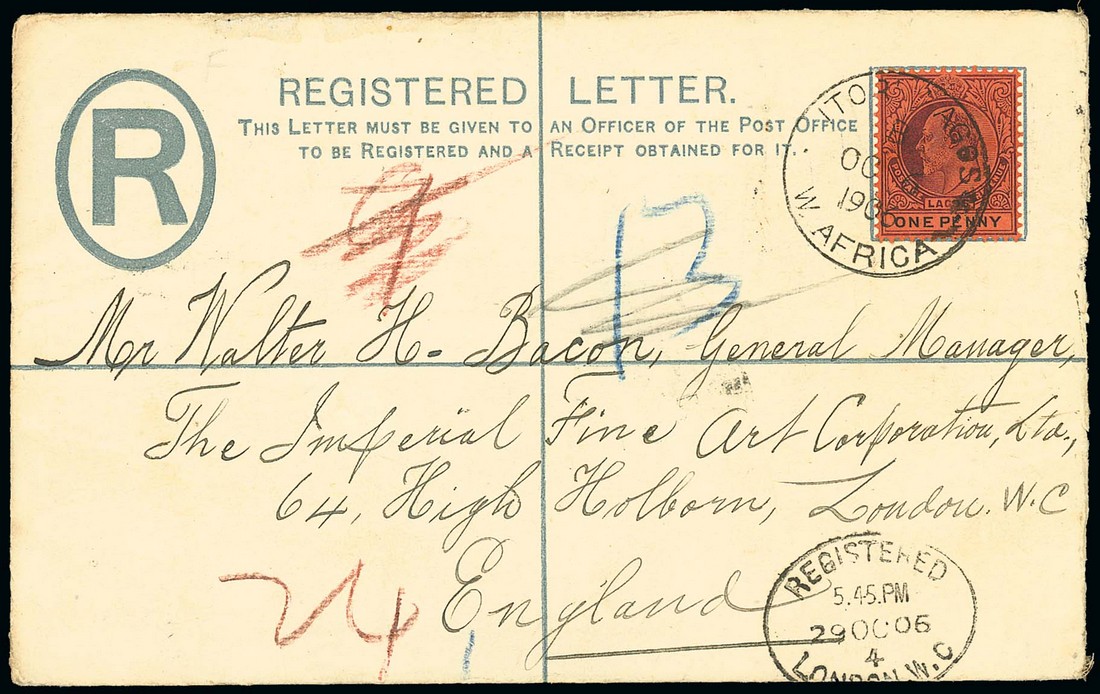 R
REGISTERED LETTER.
THIS LETTER MUST BE GIVEN TO AN OFFICER OF THE POST OFFICE
TO BE REGISTERED AND A RECEIPT OBTAINED FOR IT.
LAGOS
ONE PENNY
LAGOS
OC
190
W. AFRICA
13
Mr Walter H. Bacon, General Manager,
The Imperial Fine Art Corporation, Ltd.,
64, High Holborn, London. W.C
England
24
REGISTERED
5.45.PM
29 OC 06
4
LONDON.W.C